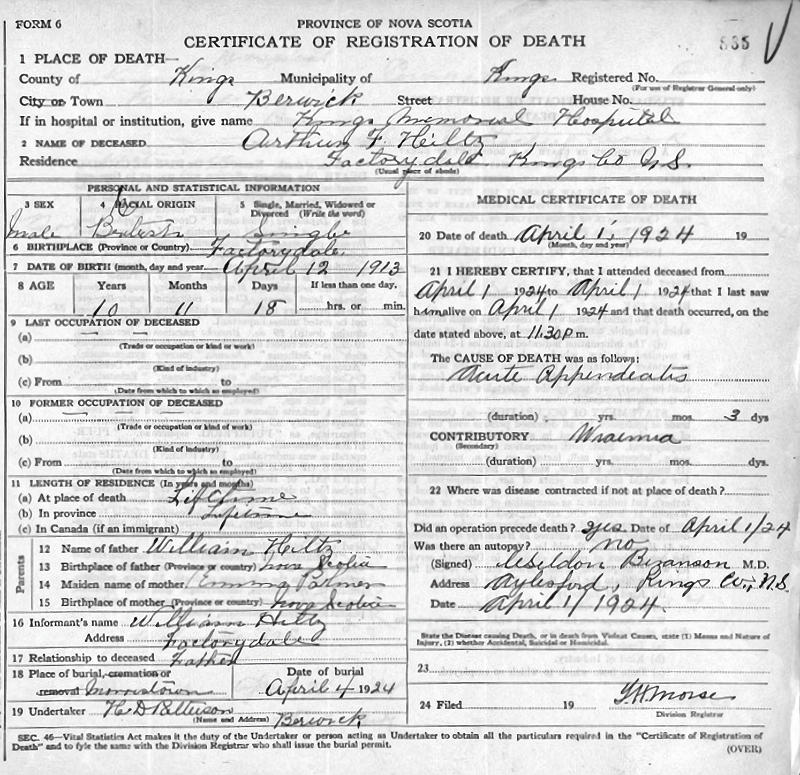 FORM 6
PROVINCE OF NOVA SCOTIA
CERTIFICATE OF REGISTRATION OF DEATH
535
1 PLACE OF DEATH—
County of Kings Municipality of Kings Registered No.
(For use of Registrar General only)
City or Town Berwick Street House No.
If in hospital or institution, give name Kings Memorial Hospital
2 NAME OF DECEASED Arthur F. Hiltz
Residence Factorydale Kings Co N.S.
(Usual place of abode)
PERSONAL AND STATISTICAL INFORMATION
3 SEX 4 RACIAL ORIGIN 5 Single, Married, Widowed or Divorced (Write the word)
Male Single
6 BIRTHPLACE (Province or Country) Factorydale
7 DATE OF BIRTH (month, day and year) April 12 1913
8 AGE Years Months Days If less than one day,
10 11 18 hrs. or min.
9 LAST OCCUPATION OF DECEASED
(a) — —
(Trade or occupation or kind of work)
(b)
(Kind of industry)
(c) From to
(Date from which to which as employed)
10 FORMER OCCUPATION OF DECEASED
(a) — —
(Trade or occupation or kind of work)
(b)
(Kind of industry)
(c) From to
(Date from which to which as employed)
11 LENGTH OF RESIDENCE (In years and months)
(a) At place of death Lifetime
(b) In province Lifetime
(c) In Canada (if an immigrant)
Parents
12 Name of father William Hiltz
13 Birthplace of father (Province or country) Nova Scotia
14 Maiden name of mother Emma Palmer
15 Birthplace of mother (Province or country) Nova Scotia
16 Informant's name William Hiltz
Address Factorydale
17 Relationship to deceased Father
18 Place of burial, cremation or Date of burial
removal Morristown April 4 1924
19 Undertaker H D
(Name and Address) Berwick
MEDICAL CERTIFICATE OF DEATH
20 Date of death April 1, 1924 19
(Month, day and year)
21 I HEREBY CERTIFY, that I attended deceased from
April 1 1924 to April 1 1924 that I last saw
him alive on April 1 1924 and that death occurred, on the
date stated above, at 11.30 P m.
The CAUSE OF DEATH was as follows:
Acute Appendicitis
(duration) yrs. mos. 3 dys
CONTRIBUTORY Uraemia
(Secondary)
(duration) yrs. mos. dys.
22 Where was disease contracted if not at place of death?
Did an operation precede death? Yes Date of April 1/24
Was there an autopsy? No
(Signed) Bezanson M.D.
Address Aylesford, Kings Co., N.S.
Date April 1/1924.
State the Disease causing Death, or in death from Violent Causes, state (1) Means and Nature of
Injury, (2) whether Accidental, Suicidal or Homicidal.
23
24 Filed 19 Morse
Division Registrar
SEC. 46—Vital Statistics Act makes it the duty of the Undertaker or person acting as Undertaker to obtain all the particulars required in the "Certificate of Registration of
Death" and to fyle the same with the Division Registrar who shall issue the burial permit.
(OVER)